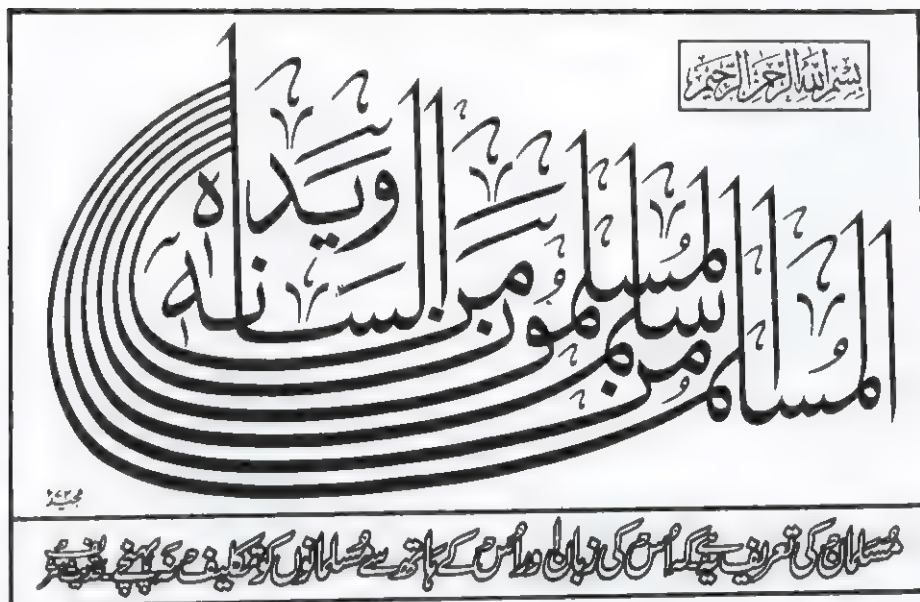 بِسْمِ اللهِ الرَّحْمٰنِ الرَّحِيْمِ
المُسلم من سلم المُسلمون من لسانه ويده
مُسلمان کی تعریف یہ ہے کہ اُس کی زبان اور اُس کے ہاتھ سے مُسلمانوں کو تکلیف نہ پہنچے۔